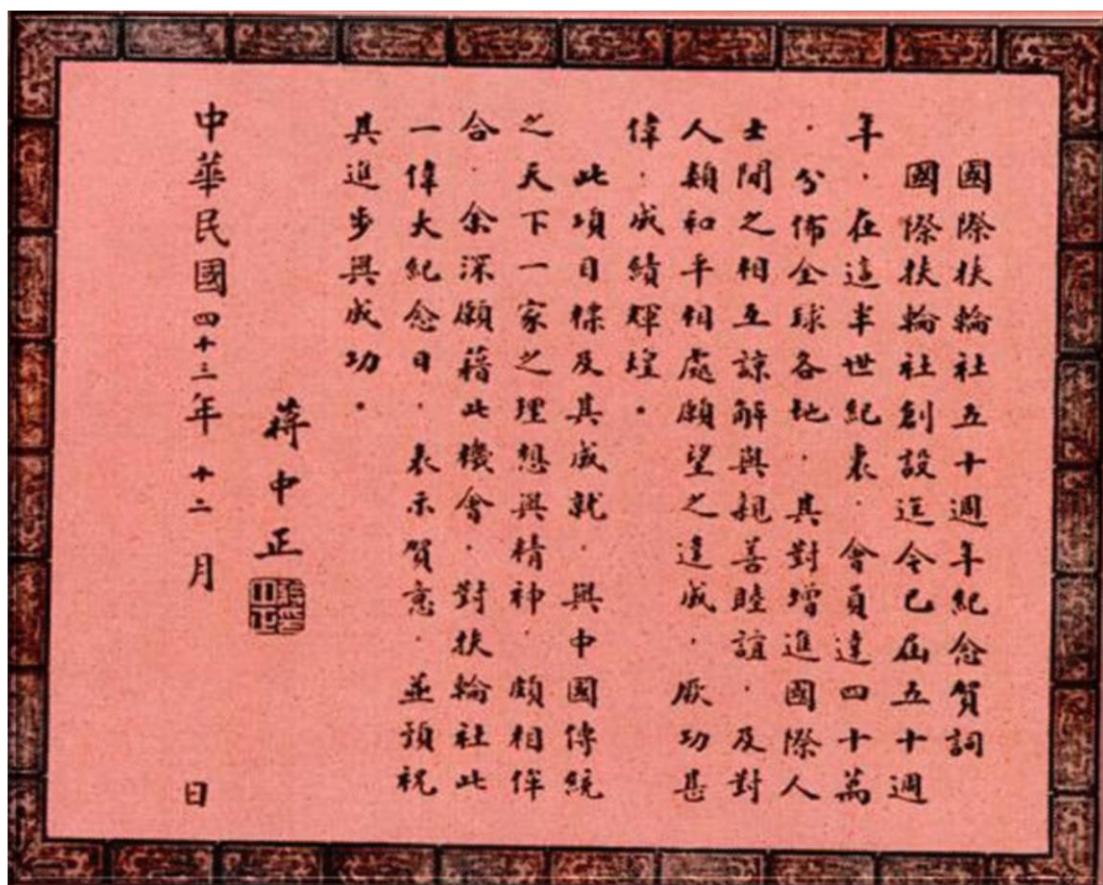 國際扶輪社五十週年紀念賀詞
國際扶輪社創設迄今已屆五十週
年．在這半世紀裏．會員達四十萬
．分佈全球各地．其對增進國際人
士間之相互諒解與親善睦誼．及對
人類和平相處願望之達成．厥功甚
偉．成績輝煌。
此項目標及其成就．與中國傳統
之天下一家之理想與精神．頗相侔
合．余深願藉此機會．對扶輪社此
一偉大紀念日．表示賀意．並預祝
其進步與成功。
蔣中正
中華民國四十三年十二月 日